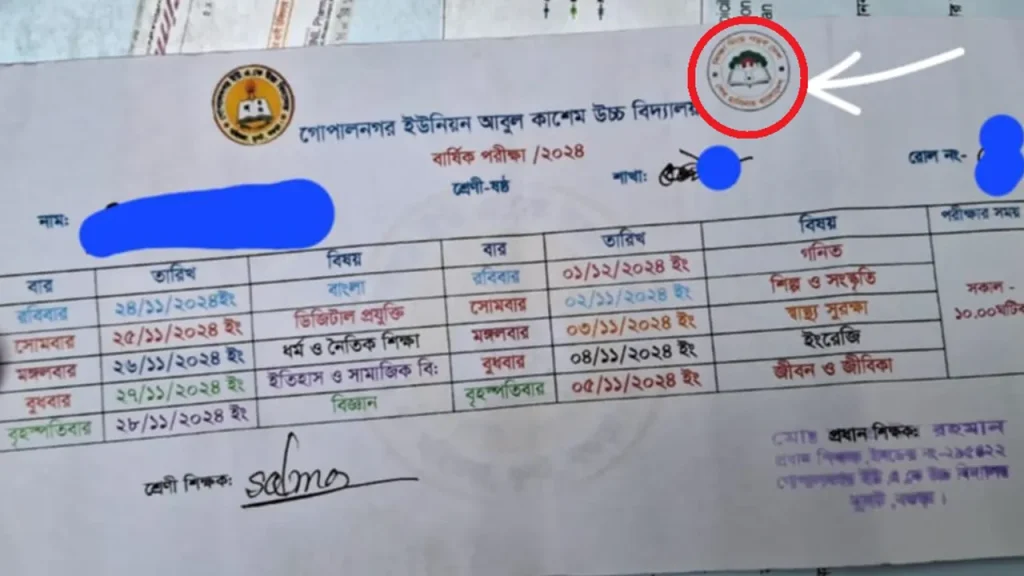 গোপালনগর ইউনিয়ন আবুল কাশেম উচ্চ বিদ্যালয়
বার্ষিক পরীক্ষা /২০২৪
শ্রেণী-ষষ্ঠ
শাখা:
রোল নং-
নাম:
বার তারিখ বিষয় বার তারিখ বিষয় পরীক্ষার সময়
রবিবার ২৪/১১/২০২৪ইং বাংলা রবিবার ০১/১২/২০২৪ ইং গনিত
সোমবার ২৫/১১/২০২৪ ইং ডিজিটাল প্রযুক্তি সোমবার ০২/১১/২০২৪ ইং শিল্প ও সংস্কৃতি
মঙ্গলবার ২৬/১১/২০২৪ ইং ধর্ম ও নৈতিক শিক্ষা মঙ্গলবার ০৩/১১/২০২৪ ইং স্বাস্থ্য সুরক্ষা
বুধবার ২৭/১১/২০২৪ ইং ইতিহাস ও সামাজিক বি: বুধবার ০৪/১১/২০২৪ ইং ইংরেজি
বৃহস্পতিবার ২৮/১১/২০২৪ ইং বিজ্ঞান বৃহস্পতিবার ০৫/১১/২০২৪ ইং জীবন ও জীবিকা
সকাল -
১০.০০ঘটিক
শ্রেণী শিক্ষক: salma
প্রধান শিক্ষক: রহমান
প্রধান শিক্ষক, ইনডেক্স নং-
উচ্চ বিদ্যালয়